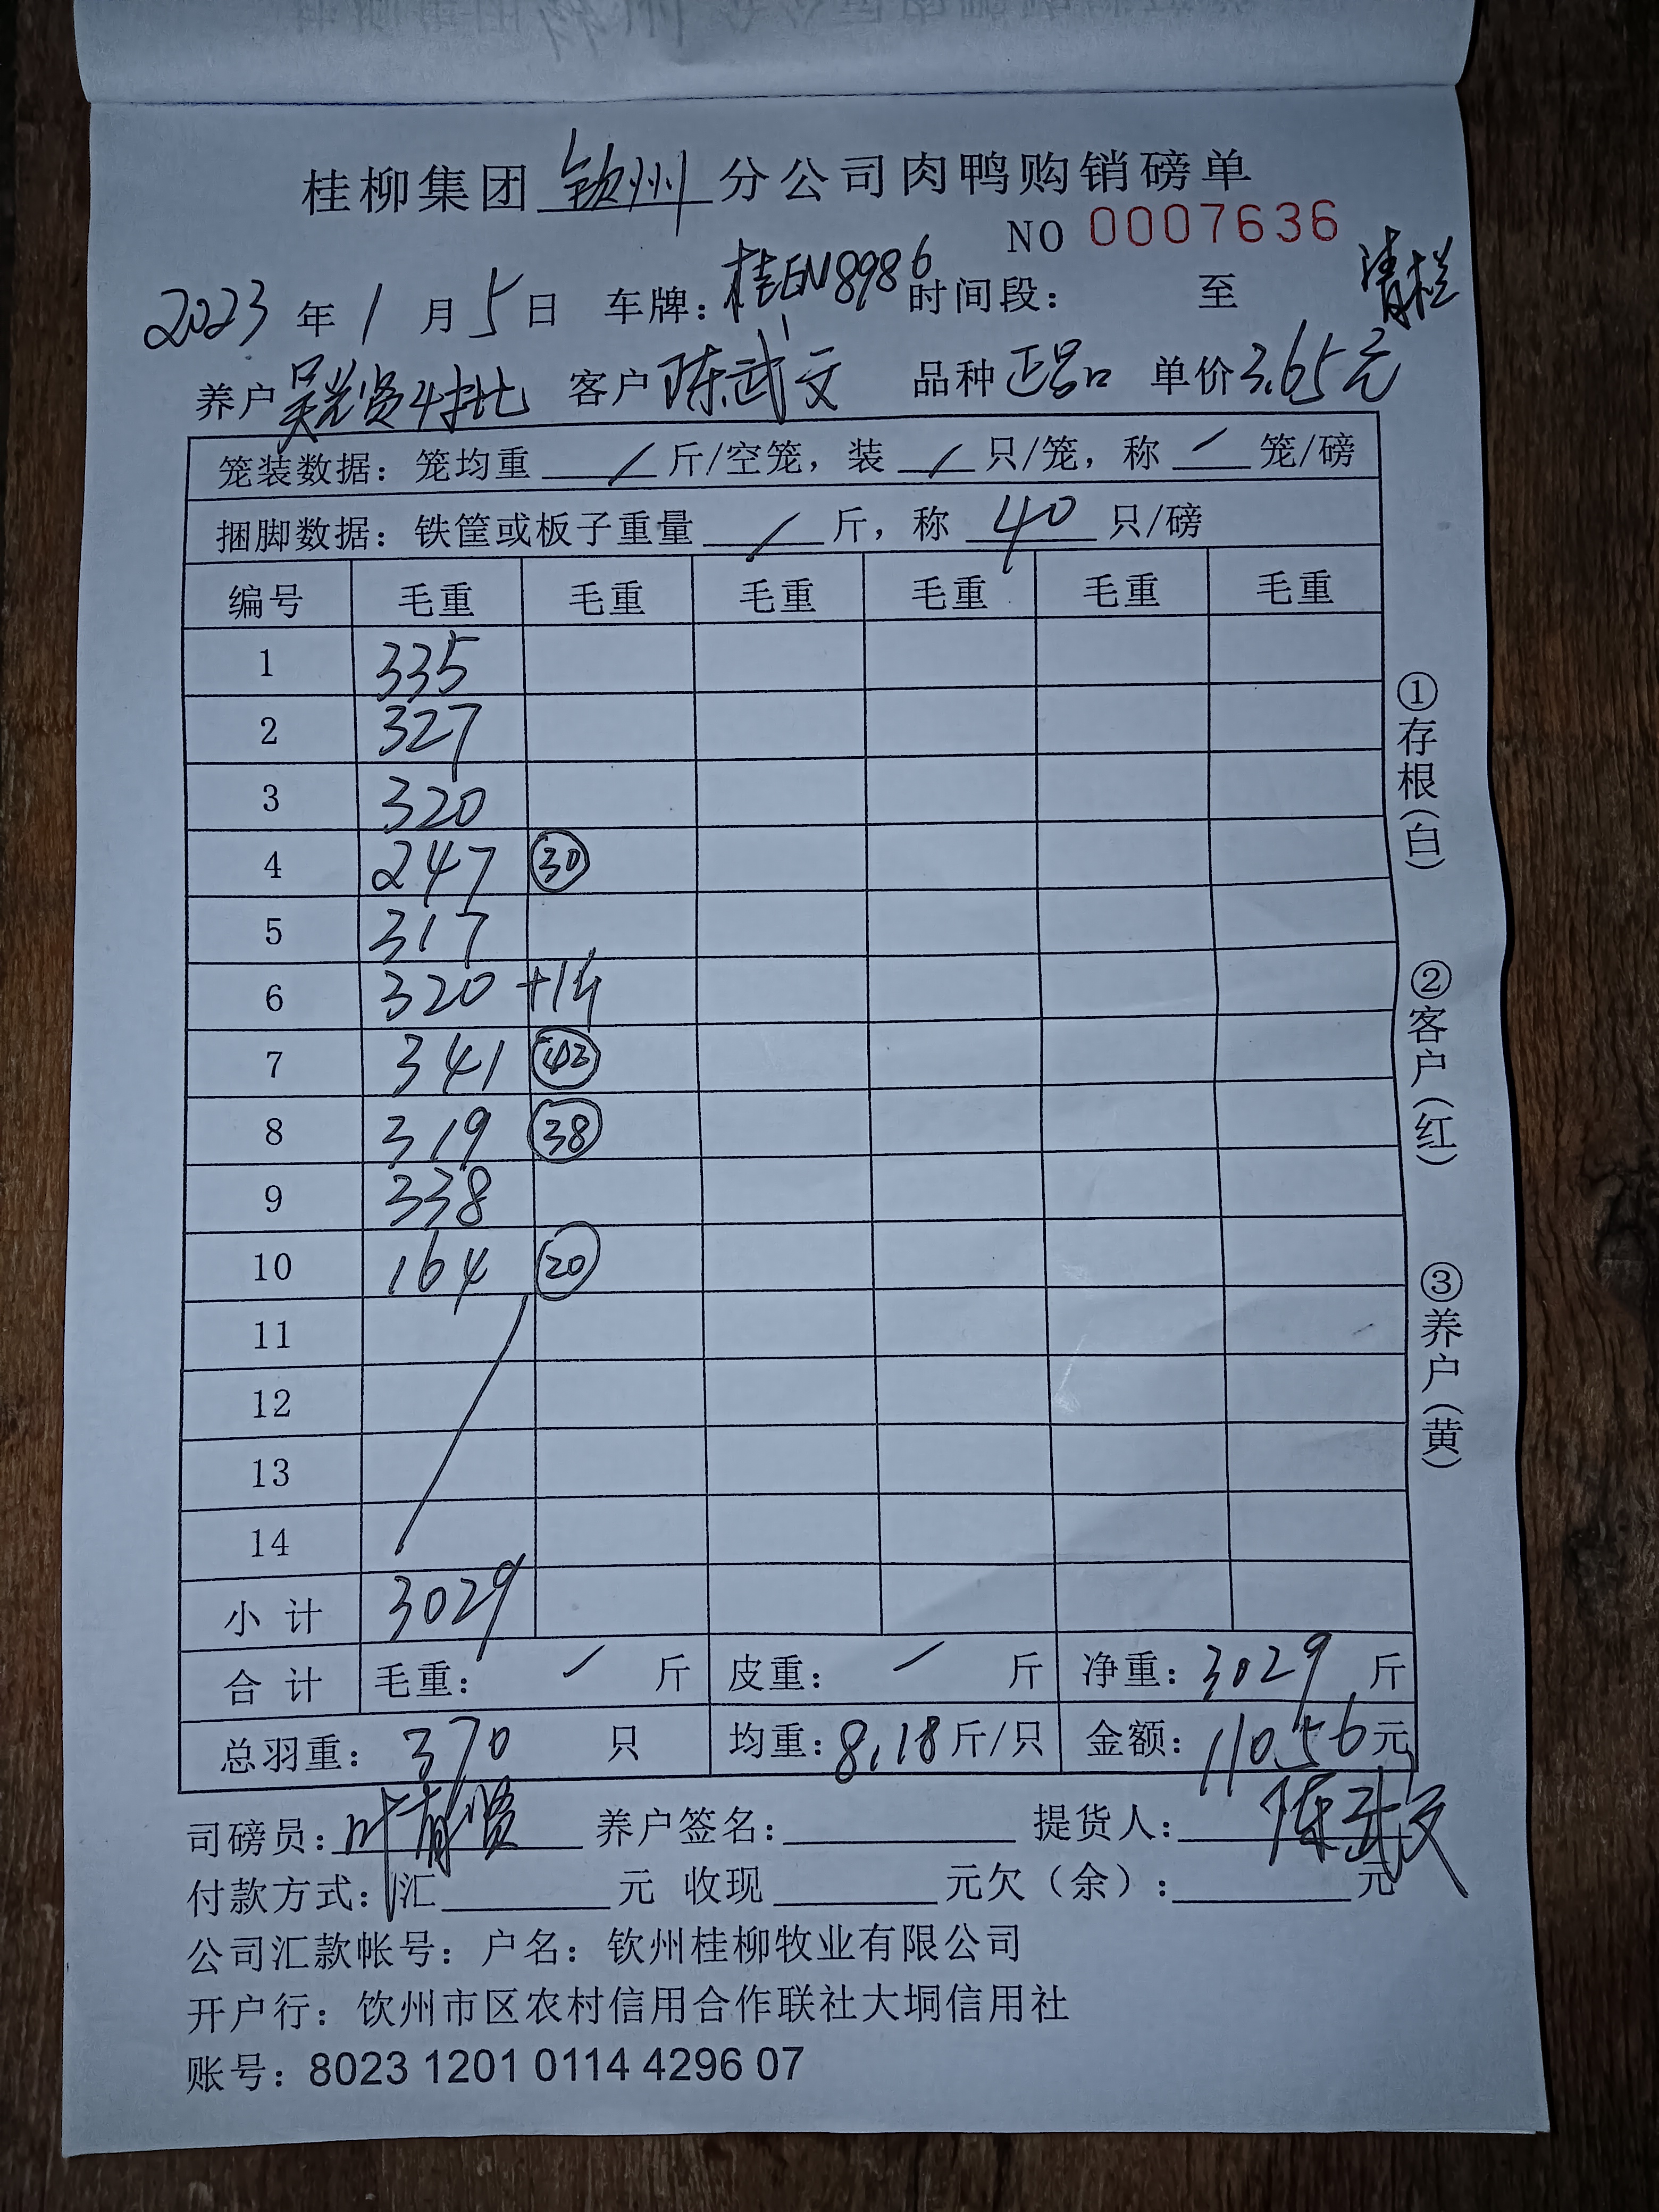 桂柳集团 钦州 分公司肉鸭购销磅单
NO 0007636
2023 年 1 月 5 日 车牌: 桂EN8986 时间段: 至 清栏
养户 吴光贤4批 客户 陈武文 品种 正品 单价 3.65元
笼装数据: 笼均重 / 斤/空笼, 装 / 只/笼, 称 / 笼/磅
捆脚数据: 铁筐或板子重量 / 斤, 称 40 只/磅
编号 毛重 毛重 毛重 毛重 毛重 毛重
1 335
2 327
3 320
4 247 30
5 317
6 320 +1
7 341 42
8 319 38
9 338
10 164 20
11
12
13
14
小计 3029
合计 毛重: / 斤 皮重: / 斤 净重: 3029 斤
总羽重: 370 只 均重: 8.18 斤/只 金额: 11056 元
司磅员: 叶 养户签名: 提货人: 陈武文
付款方式: 汇 元 收现 元欠（余）: 元
公司汇款帐号: 户名: 钦州桂柳牧业有限公司
开户行: 饮州市区农村信用合作联社大垌信用社
账号: 8023 1201 0114 4296 07
①存根（白）
②客户（红）
③养户（黄）